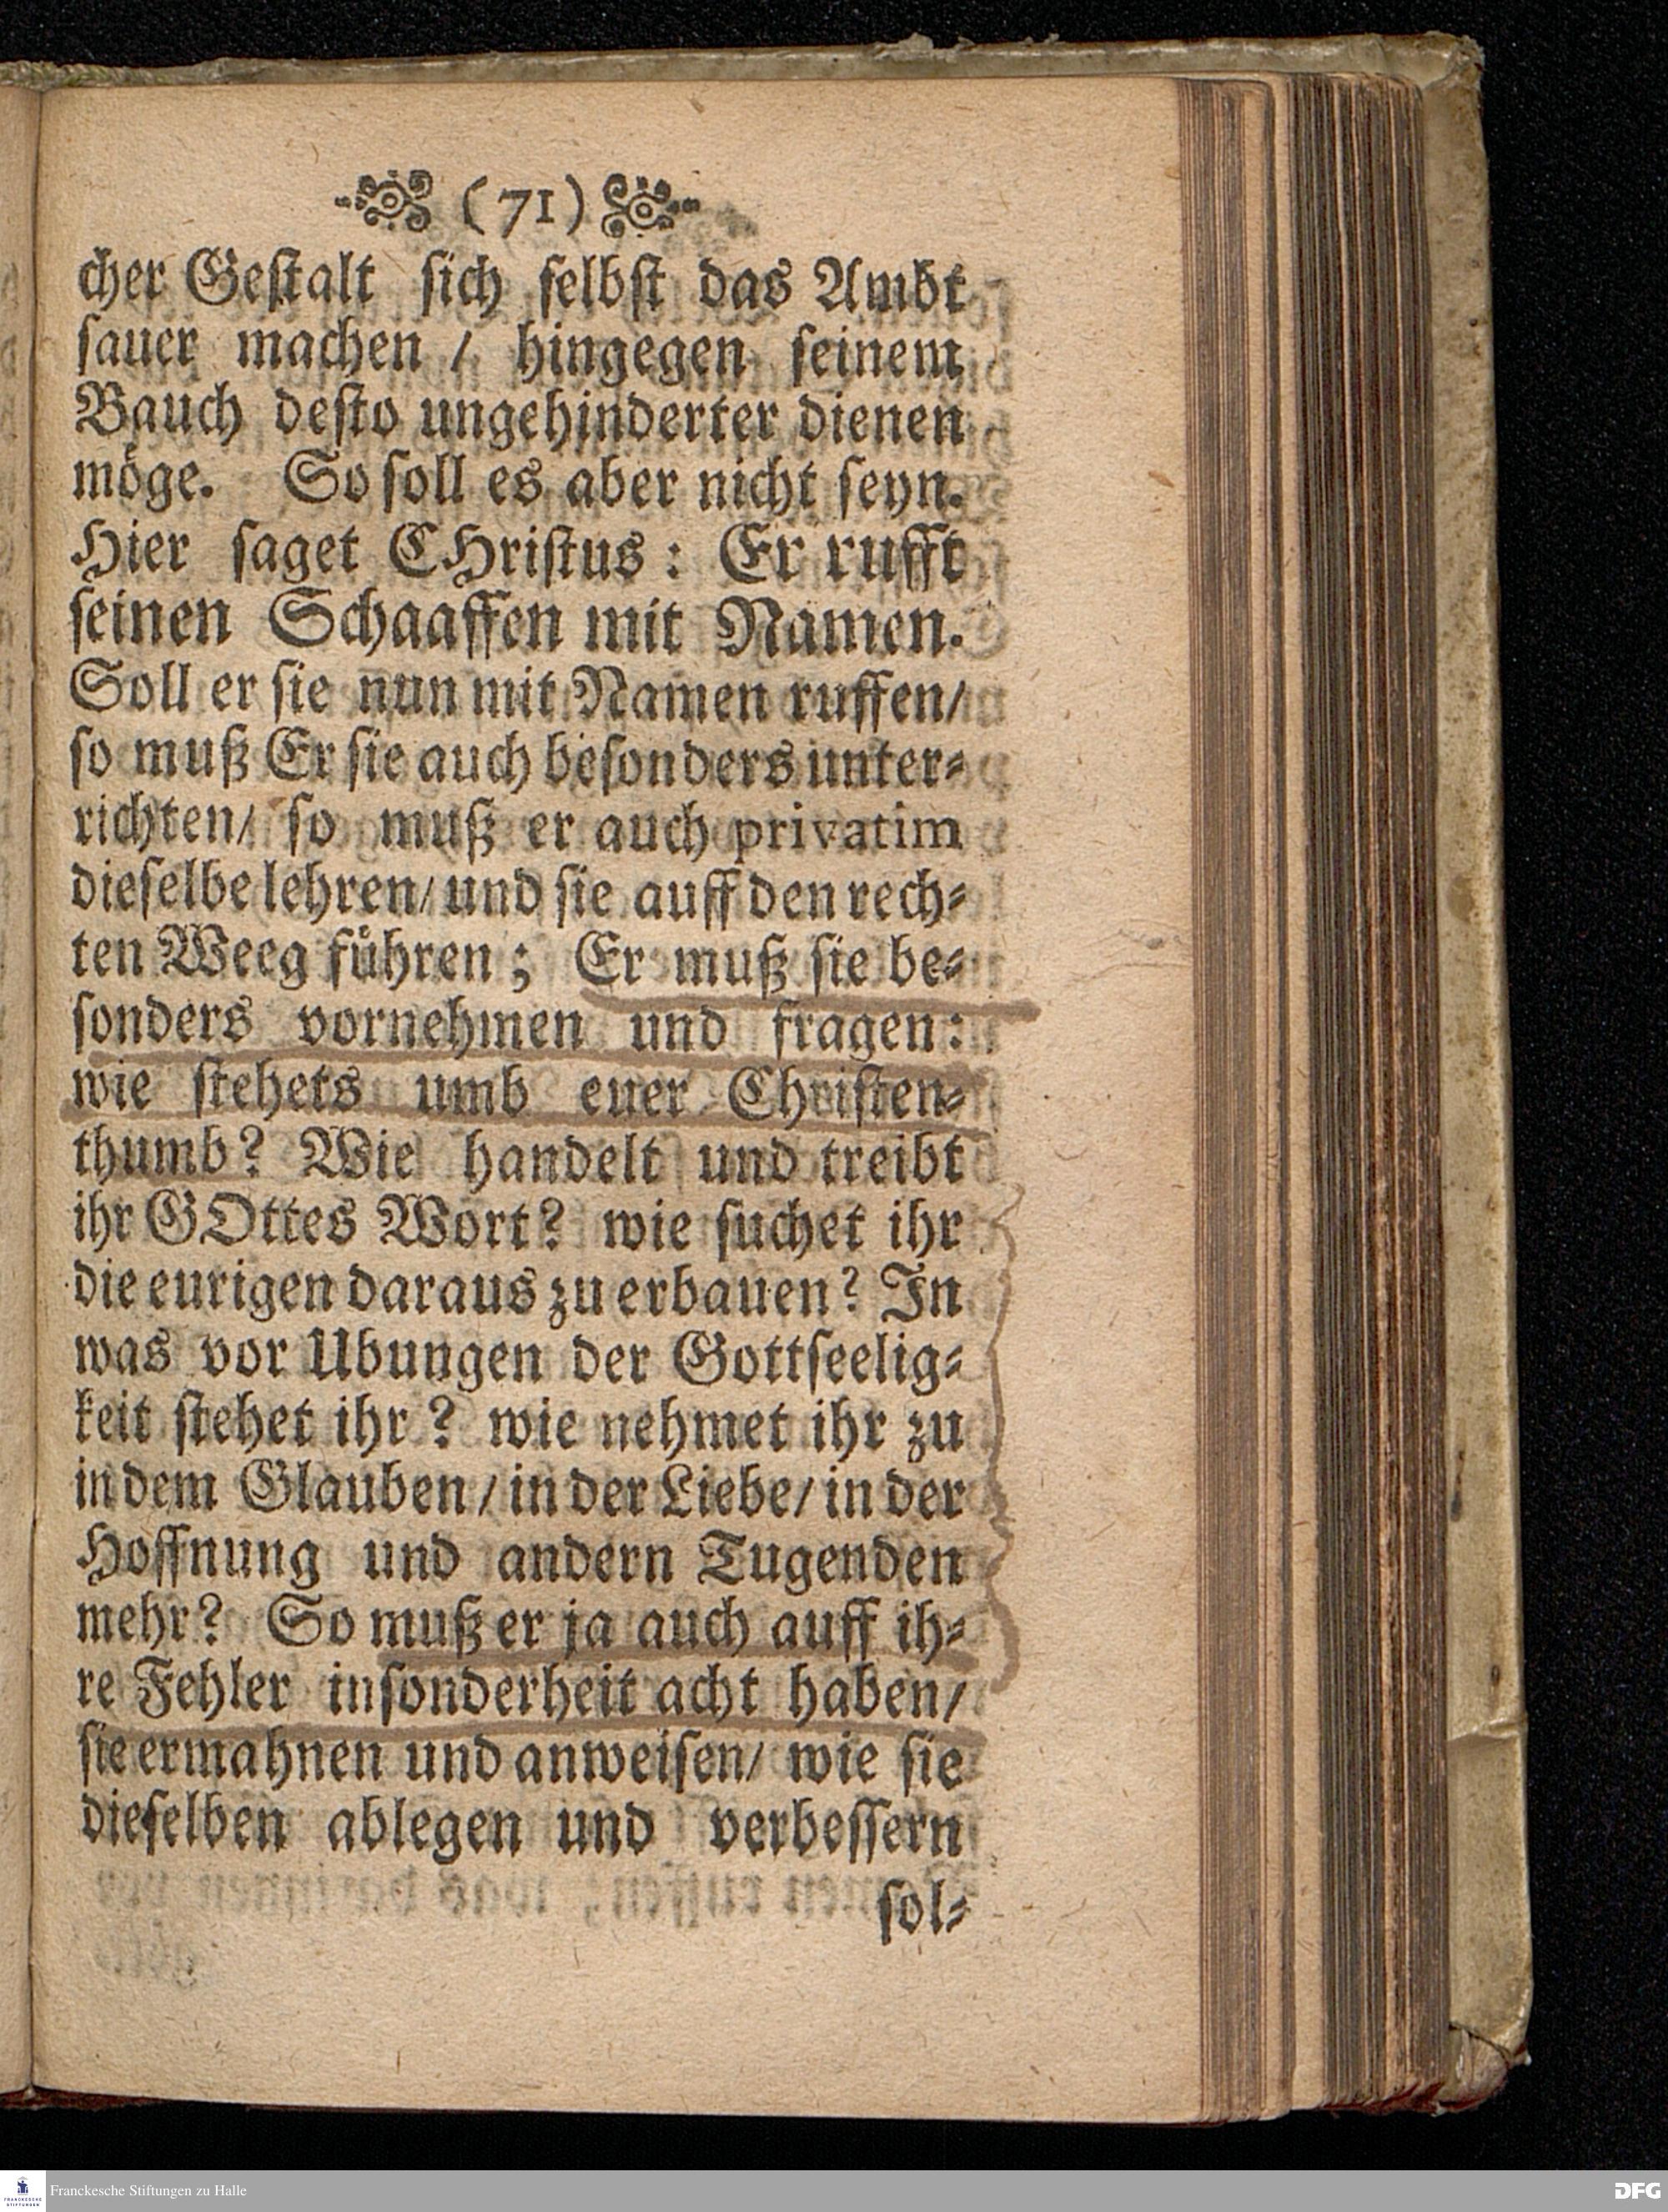 (71)
cher Geſtalt ſich ſelbſt das Ambt
ſauer machen / hingegen ſeinem
Bauch deſto ungehinderter dienen
möge. So ſoll es aber nicht ſeyn.
Hier ſaget CHriſtus: Er rufft
ſeinen Schaaffen mit Namen.
Soll er ſie nun mit Namen ruffen/
ſo muß Er ſie auch beſonders unter⸗
richten/ ſo muß er auch privatim
dieſelbe lehren/ und ſie auff den rech⸗
ten Weeg führen; Er muß ſie be⸗
ſonders vornehmen und fragen:
wie ſtehets umb euer Chriſten⸗
thumb? Wie handelt und treibt
ihr GOttes Wort? wie ſuchet ihr
die eurigen daraus zu erbauen? In
was vor Ubungen der Gottſeelig⸗
keit ſtehet ihr? wie nehmet ihr zu
in dem Glauben/ in der Liebe/ in der
Hoffnung und andern Tugenden
mehr? So muß er ja auch auff ih⸗
re Fehler inſonderheit acht haben/
ſie ermahnen und anweiſen/ wie ſie
dieſelben ablegen und verbeſſern
ſol⸗
FRANCKESCHE STIFTUNGEN
Franckesche Stiftungen zu Halle
DFG